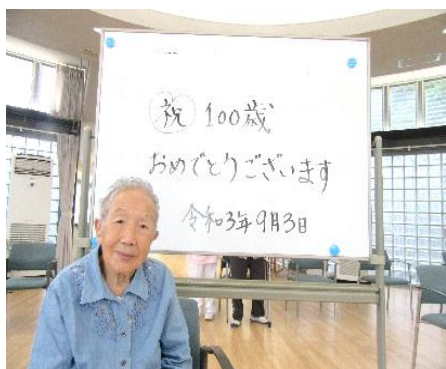 祝 100歳
おめでとうございます
令和3年9月3日